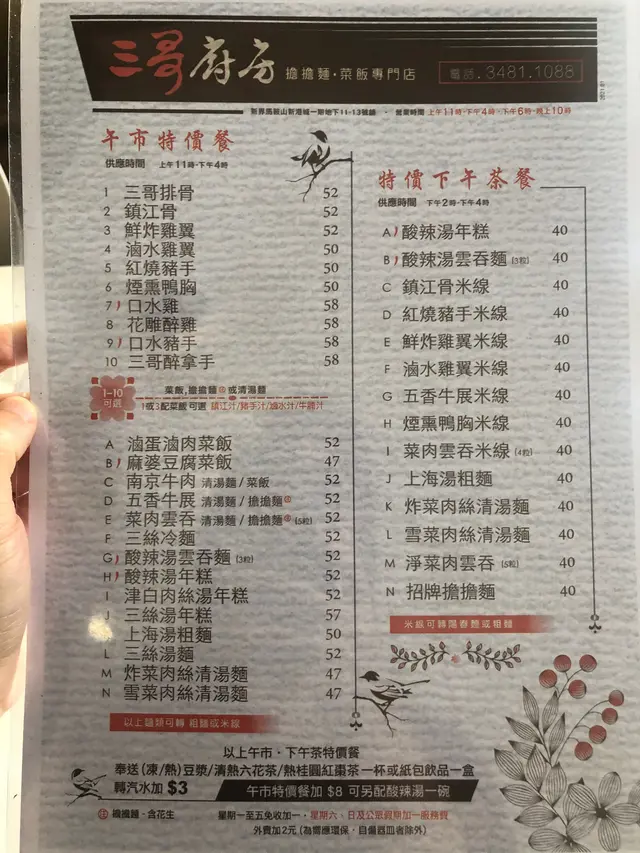 三哥廚房 擔擔麵·菜飯專門店 電話.3481.1088
新界馬鞍山新港城一期地下11-13號舖 · 營業時間 上午11時-下午4時 · 下午6時-晚上10時
午市特價餐
供應時間 上午11時-下午4時
1 三哥排骨 52
2 鎮江骨 52
3 鮮炸雞翼 52
4 滷水雞翼 50
5 紅燒豬手 50
6 煙熏鴨胸 50
7 口水雞 58
8 花雕醉雞 58
9 口水豬手 58
10 三哥醉拿手 58
1-10 可選
菜飯,擔擔麵 或清湯麵
1或3配菜飯 可選 鎮江汁/豬手汁/滷水汁/牛𦟌汁
A 滷蛋滷肉菜飯 52
B 麻婆豆腐菜飯 47
C 南京牛肉 清湯麵/菜飯 52
D 五香牛展 清湯麵/擔擔麵 52
E 菜肉雲吞 清湯麵/擔擔麵 (5粒) 52
F 三絲冷麵 52
G 酸辣湯雲吞麵 (3粒) 52
H 酸辣湯年糕 52
I 津白肉絲湯年糕 52
J 三絲湯年糕 57
上海湯粗麵 50
L 三絲湯麵 52
M 炸菜肉絲清湯麵 47
N 雪菜肉絲清湯麵 47
以上麵類可轉 粗麵或米線
特價下午茶餐
供應時間 下午2時-下午4時
A 酸辣湯年糕 40
B 酸辣湯雲吞麵 (3粒) 40
C 鎮江骨米線 40
D 紅燒豬手米線 40
E 鮮炸雞翼米線 40
F 滷水雞翼米線 40
G 五香牛展米線 40
H 煙熏鴨胸米線 40
I 菜肉雲吞米線 (4粒) 40
J 上海湯粗麵 40
K 炸菜肉絲清湯麵 40
L 雪菜肉絲清湯麵 40
M 淨菜肉雲吞 (5粒) 40
N 招牌擔擔麵 40
米線可轉陽春麵或粗麵
以上午市·下午茶特價餐
奉送(凍/熱)豆漿/清熱六花茶/熱桂圓紅棗茶一杯或紙包飲品一盒
轉汽水加 $3
午市特價餐加 $8 可另配酸辣湯一碗
擔擔麵-含花生
星期一至五免收加一,星期六、日及公眾假期加一服務費
外賣加2元(為響應環保,自備器皿者除外)